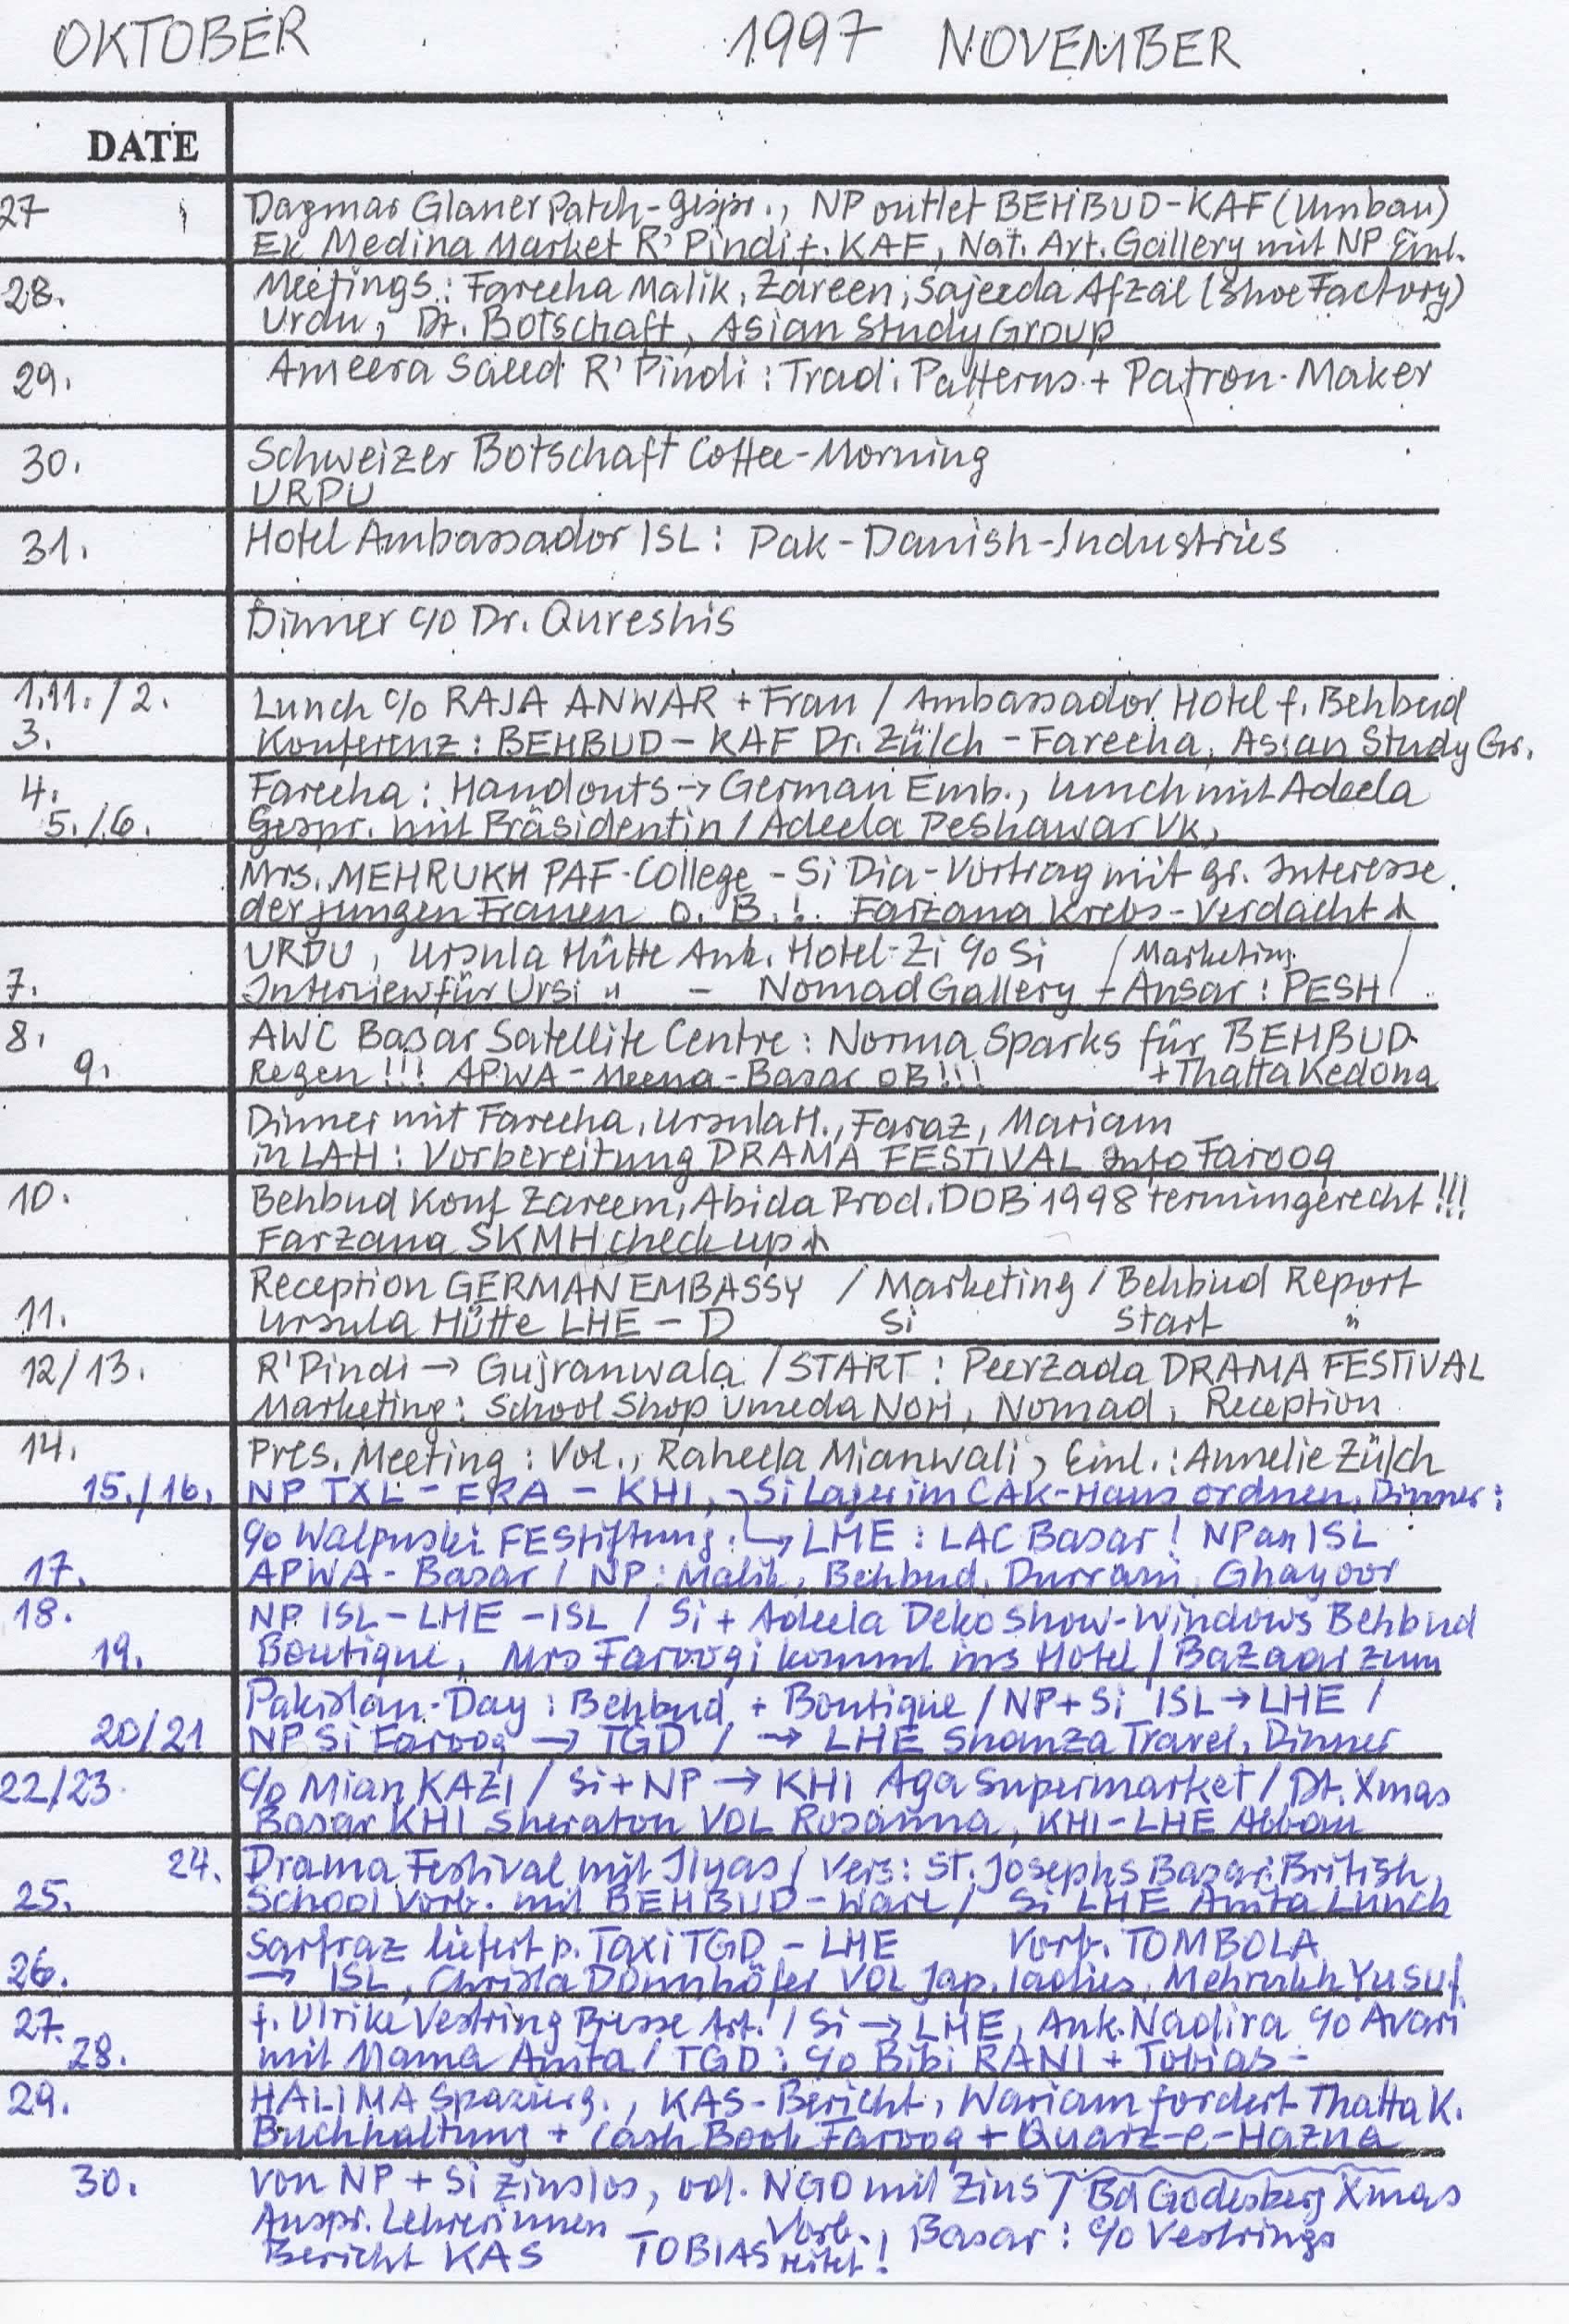 OKTOBER 1997 NOVEMBER
DATE
27 Dagmar Glaner Patch-gespr., NP outlet BEHBUD-KAF (Umbau)
Ek Medina Market R'Pindi f. KAF, Nat. Art. Gallery mit NP Einl.
28. Meetings: Fareeha Malik, Zareen, Sajeeda Afzal (Shoe Factory)
Urdu, Dt. Botschaft, Asian Study Group
29. Ameera Saeed R'Pindi: Trad. Patterns + Patron-Maker
30. Schweizer Botschaft Coffee-Morning
URDU
31. Hotel Ambassador ISL: Pak-Danish-Industries
Dinner c/o Dr. Qureshis
1.11./2. Lunch c/o RAJA ANWAR + Frau / Ambassador Hotel f. Behbud
3. Konferenz: BEHBUD - KAF Dr. Zülch - Fareeha, Asian Study Gr.
4. Fareeha: Handouts → German Emb., lunch mit Adeela
5./6. Gespr. mit Präsidentin / Adeela Peshawar Vk,
Mrs. MEHRUKH PAF-College - Si Dia-Vortrag mit gr. Interesse
der jungen Frauen o. B.! Farzana Krebs-Verdacht
URDU, Ursula Hütte Ank. Hotel-Zi c/o Si / Marketing /
7. Interview für Ursi " - Nomad Gallery + Ansar: PESH /
8. AWC Basar Satellite Centre: Norma Sparks für BEHBUD
9. Regen!!! APWA-Meena-Basar OB!!! + Thatta Kedona
Dinner mit Fareeha, Ursula H., Faraz, Mariam
in LAH: Vorbereitung DRAMA FESTIVAL Info Farooq
10. Behbud Konf Zareem, Abida Prod. DOB 1998 termingerecht!!!
Farzana SKMH check up
Reception GERMAN EMBASSY / Marketing / Behbud Report
11. Ursula Hütte LHE - D Si Start "
12/13. R'Pindi → Gujranwala / START: Peerzada DRAMA FESTIVAL
Marketing: School Shop Umeda Nori, Nomad, Reception
14. Pres. Meeting: Vol., Raheela Mianwali, Einl.: Annelie Zülch
15./16. NP TXL - FRA - KHI, Si Lager im CAK-Haus ordnen, Dinner:
c/o Walpuski FEStiftung. ↳ LHE: LAC Basar! NP an ISL
17. APWA-Basar / NP: Malik, Behbud, Durrani, Ghayoor
18. NP ISL-LHE-ISL / Si + Adeela Deko Show-Windows Behbud
19. Boutique, Mrs Farooqi kommt ins Hotel / Bazaar zum
Pakistan-Day: Behbud + Boutique / NP + Si ISL → LHE /
20/21 NP Si Farooq → TGD / → LHE Shanza Travel, Dinner
22/23. c/o Mian KAZI / Si + NP → KHI Aga Supermarket / Dt. Xmas
Basar KHI Sheraton VOL Rosanna, KHI-LHE Abbau
24. Drama Festival mit Ilyas / Vers: St. Josephs Basar: British
25. School Vorb. mit BEHBUD-Ware / Si LHE Anita Lunch
Sarfraz liefert p. Taxi TGD - LHE Vorb. TOMBOLA
26. → ISL, Christa Dönnhöfer VOL Jap. ladies, Mehrukh Yusuf
27. f. Ulrike Vestring Presse Art. / Si → LHE, Ank. Nadira c/o Avari
28. mit Mama Anita / TGD: c/o Bibi RANI + Tobias -
29. HALIMA Spazierg., KAS-Bericht, Wariam fordert Thatta K.
Buchhaltung + Cash Book Farooq + Quarz-e-Hazna
30. von NP + Si zinslos, od. NGO mit Zins / Bd Godesberg Xmas
Anspr. Lehrerinnen Vorb. Basar: c/o Vestrings
Bericht KAS TOBIAS reitet!